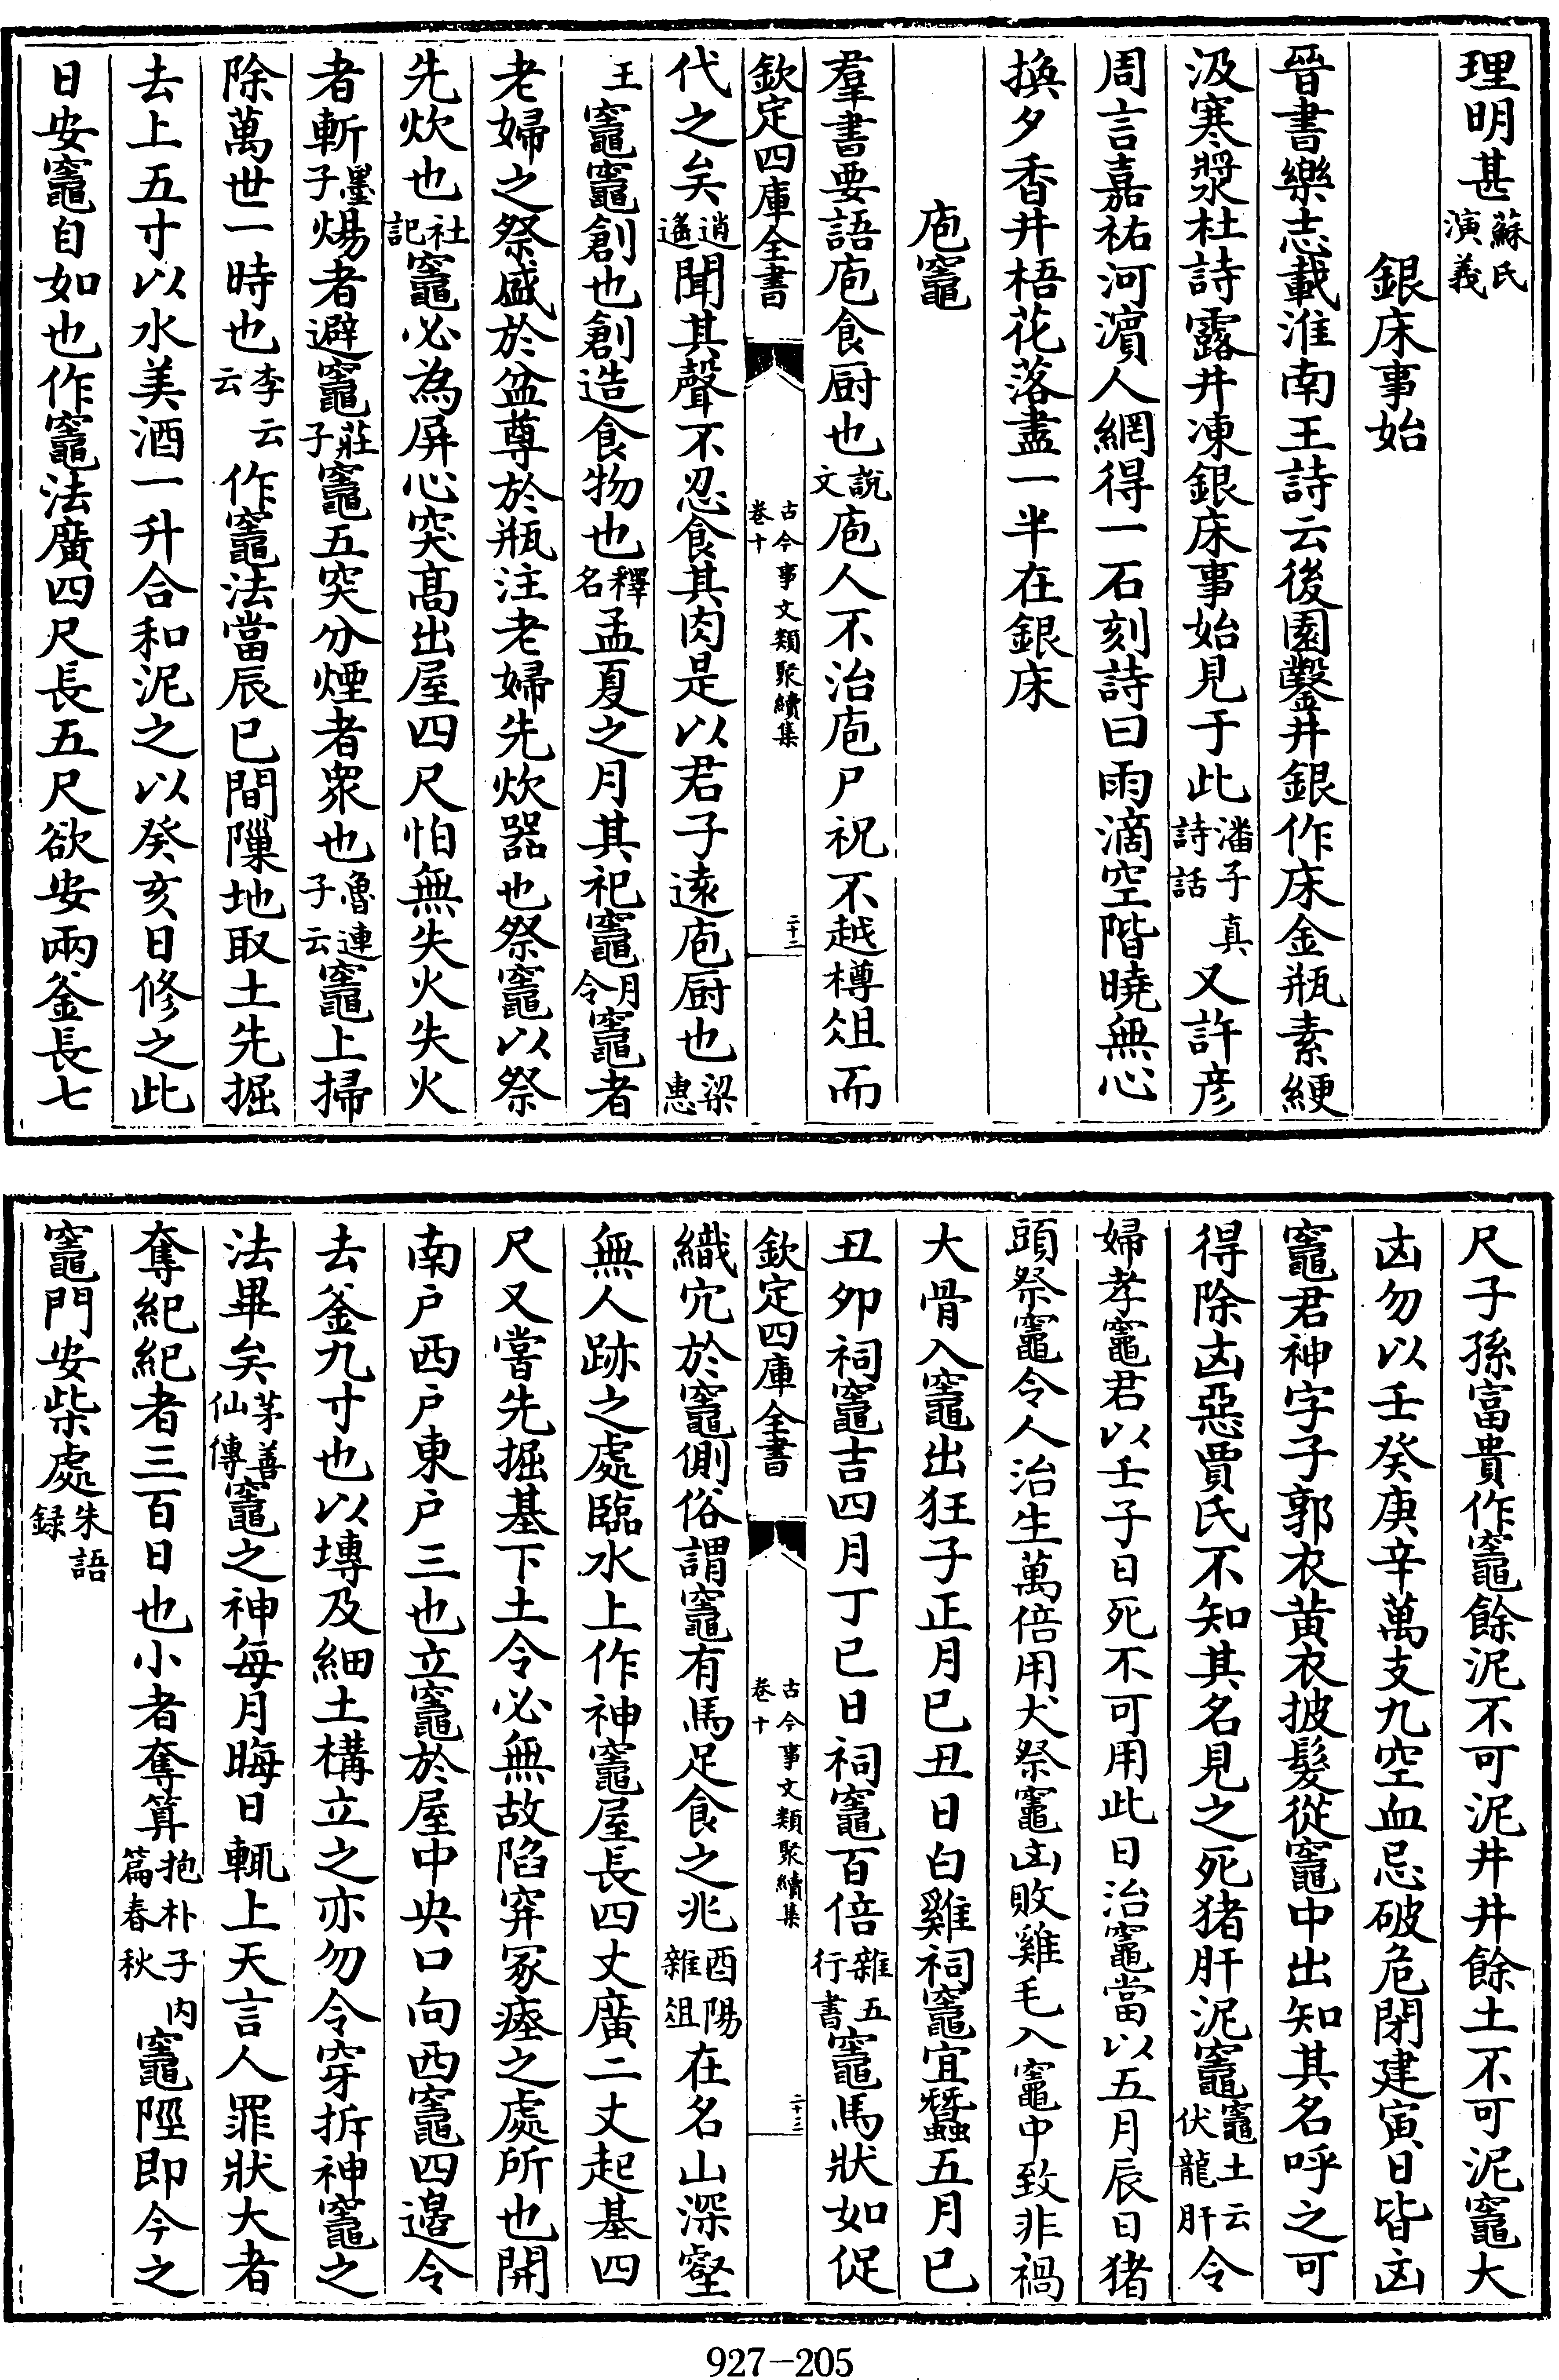 理明甚蘇氏演義
銀床事始
晉書樂志載淮南王詩云後園鑿井銀作床金瓶素綆
汲寒漿杜詩露井凍銀床事始見于此潘子真詩話又許彦
周言嘉祐河濱人網得一石刻詩曰雨滴空階曉無心
換夕香井梧花落盡一半在銀床
庖竈
羣書要語庖食厨也説文庖人不治庖尸祝不越樽俎而
欽定四庫全書
古今事文類聚續集
卷十
二十二
代之矣逍遙聞其聲不忍食其肉是以君子遠庖厨也梁惠
王竈竈創也創造食物也釋名孟夏之月其祀竈月令竈者
老婦之祭盛於盆尊於瓶注老婦先炊器也祭竈以祭
先炊也社記竈必為屏心突髙出屋四尺怕無失火失火
者斬墨子煬者避竈莊子竈五突分煙者衆也魯連子云竈上掃
除萬世一時也李云云作竈法當辰巳間隟地取土先掘
去上五寸以水美酒一升合和泥之以癸亥日修之此
日安竈自如也作竈法廣四尺長五尺欲安兩釜長七
尺子孫富貴作竈餘泥不可泥井井餘土不可泥竈大
凶勿以壬癸庚辛萬支九空血忌破危閉建寅日皆凶
竈君神字子郭衣黄衣披髮從竈中出知其名呼之可
得除凶惡賈氏不知其名見之死猪肝泥竈竈土云伏龍肝令
婦孝竈君以壬子日死不可用此日治竈當以五月辰日猪
頭祭竈令人治生萬倍用犬祭竈凶敗雞毛入竈中致非禍
大骨入竈出狂子正月巳丑日白雞祠竈宜蠶五月巳
丑夘祠竈吉四月丁巳日祠竈百倍雜五行書竈馬狀如促
欽定四庫全書
古今事文類聚續集
卷十
二十三
織穴於竈側俗謂竈有馬足食之兆酉陽雜俎在名山深壑
無人跡之處臨水上作神竈屋長四丈廣二丈起基四
尺又當先掘基下土令必無故陷穽冢瘞之處所也開
南户西户東户三也立竈於屋中央口向西竈四邉令
去釜九寸也以塼及細土構立之亦勿令穿拆神竈之
法畢矣茅善仙傳竈之神每月晦日輒上天言人罪狀大者
奪紀紀者三百日也小者奪算抱朴子内篇春秋竈陘即今之
竈門安柴處朱語録
927-205